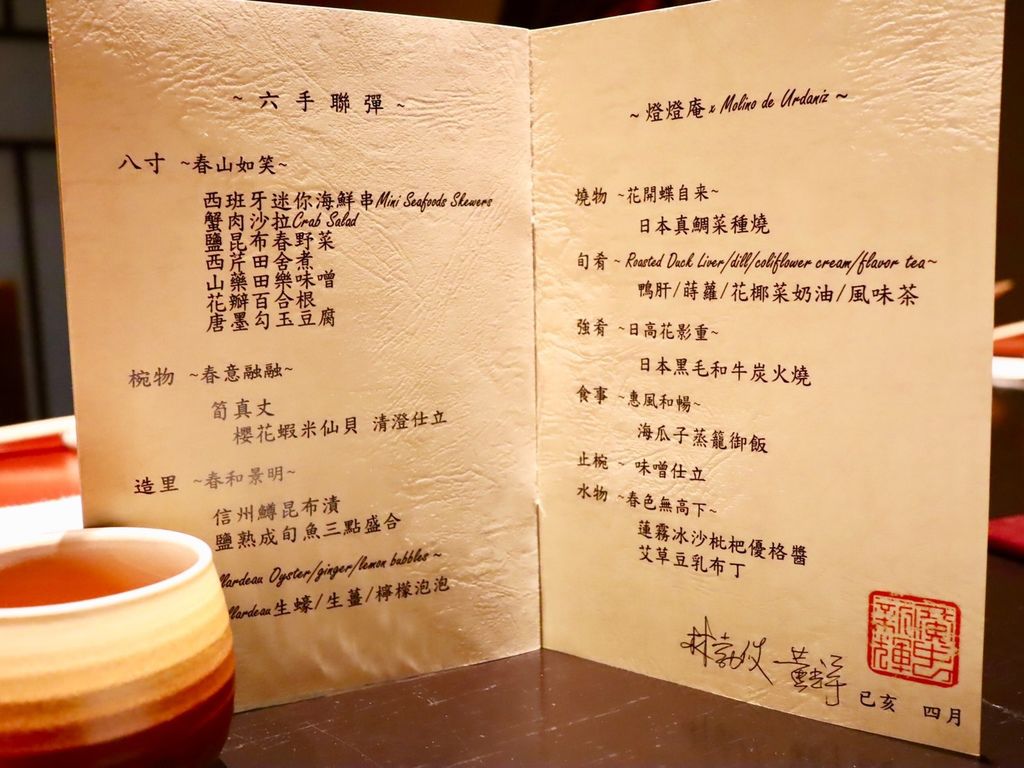 ~ 六手聯彈 ~
八寸 ~春山如笑~
西班牙迷你海鮮串Mini Seafoods Skewers
蟹肉沙拉Crab Salad
鹽昆布春野菜
西芹田舍煮
山藥田樂味噌
花瓣百合根
唐墨勾玉豆腐
椀物 ~春意融融~
筍真丈
櫻花蝦米仙貝 清澄仕立
造里 ~春和景明~
信州鱒昆布漬
鹽熟成旬魚三點盛合
llardeau Oyster/ginger/lemon bubbles ~
llardeau生蠔/生薑/檸檬泡泡
~ 燈燈庵 x Molino de Urdaniz ~
燒物 ~花開蝶自来~
日本真鯛菜種燒
旬肴~ Roasted Duck Liver/dill/coliflower cream/flavor tea~
鴨肝/蒔蘿/花椰菜奶油/風味茶
強肴 ~日高花影重~
日本黑毛和牛炭火燒
食事 ~惠風和暢~
海瓜子蒸籠御飯
止椀 ~ 味噌仕立
水物 ~春色無高下~
蓮霧冰沙枇杷優格醬
艾草豆乳布丁
己亥 四月